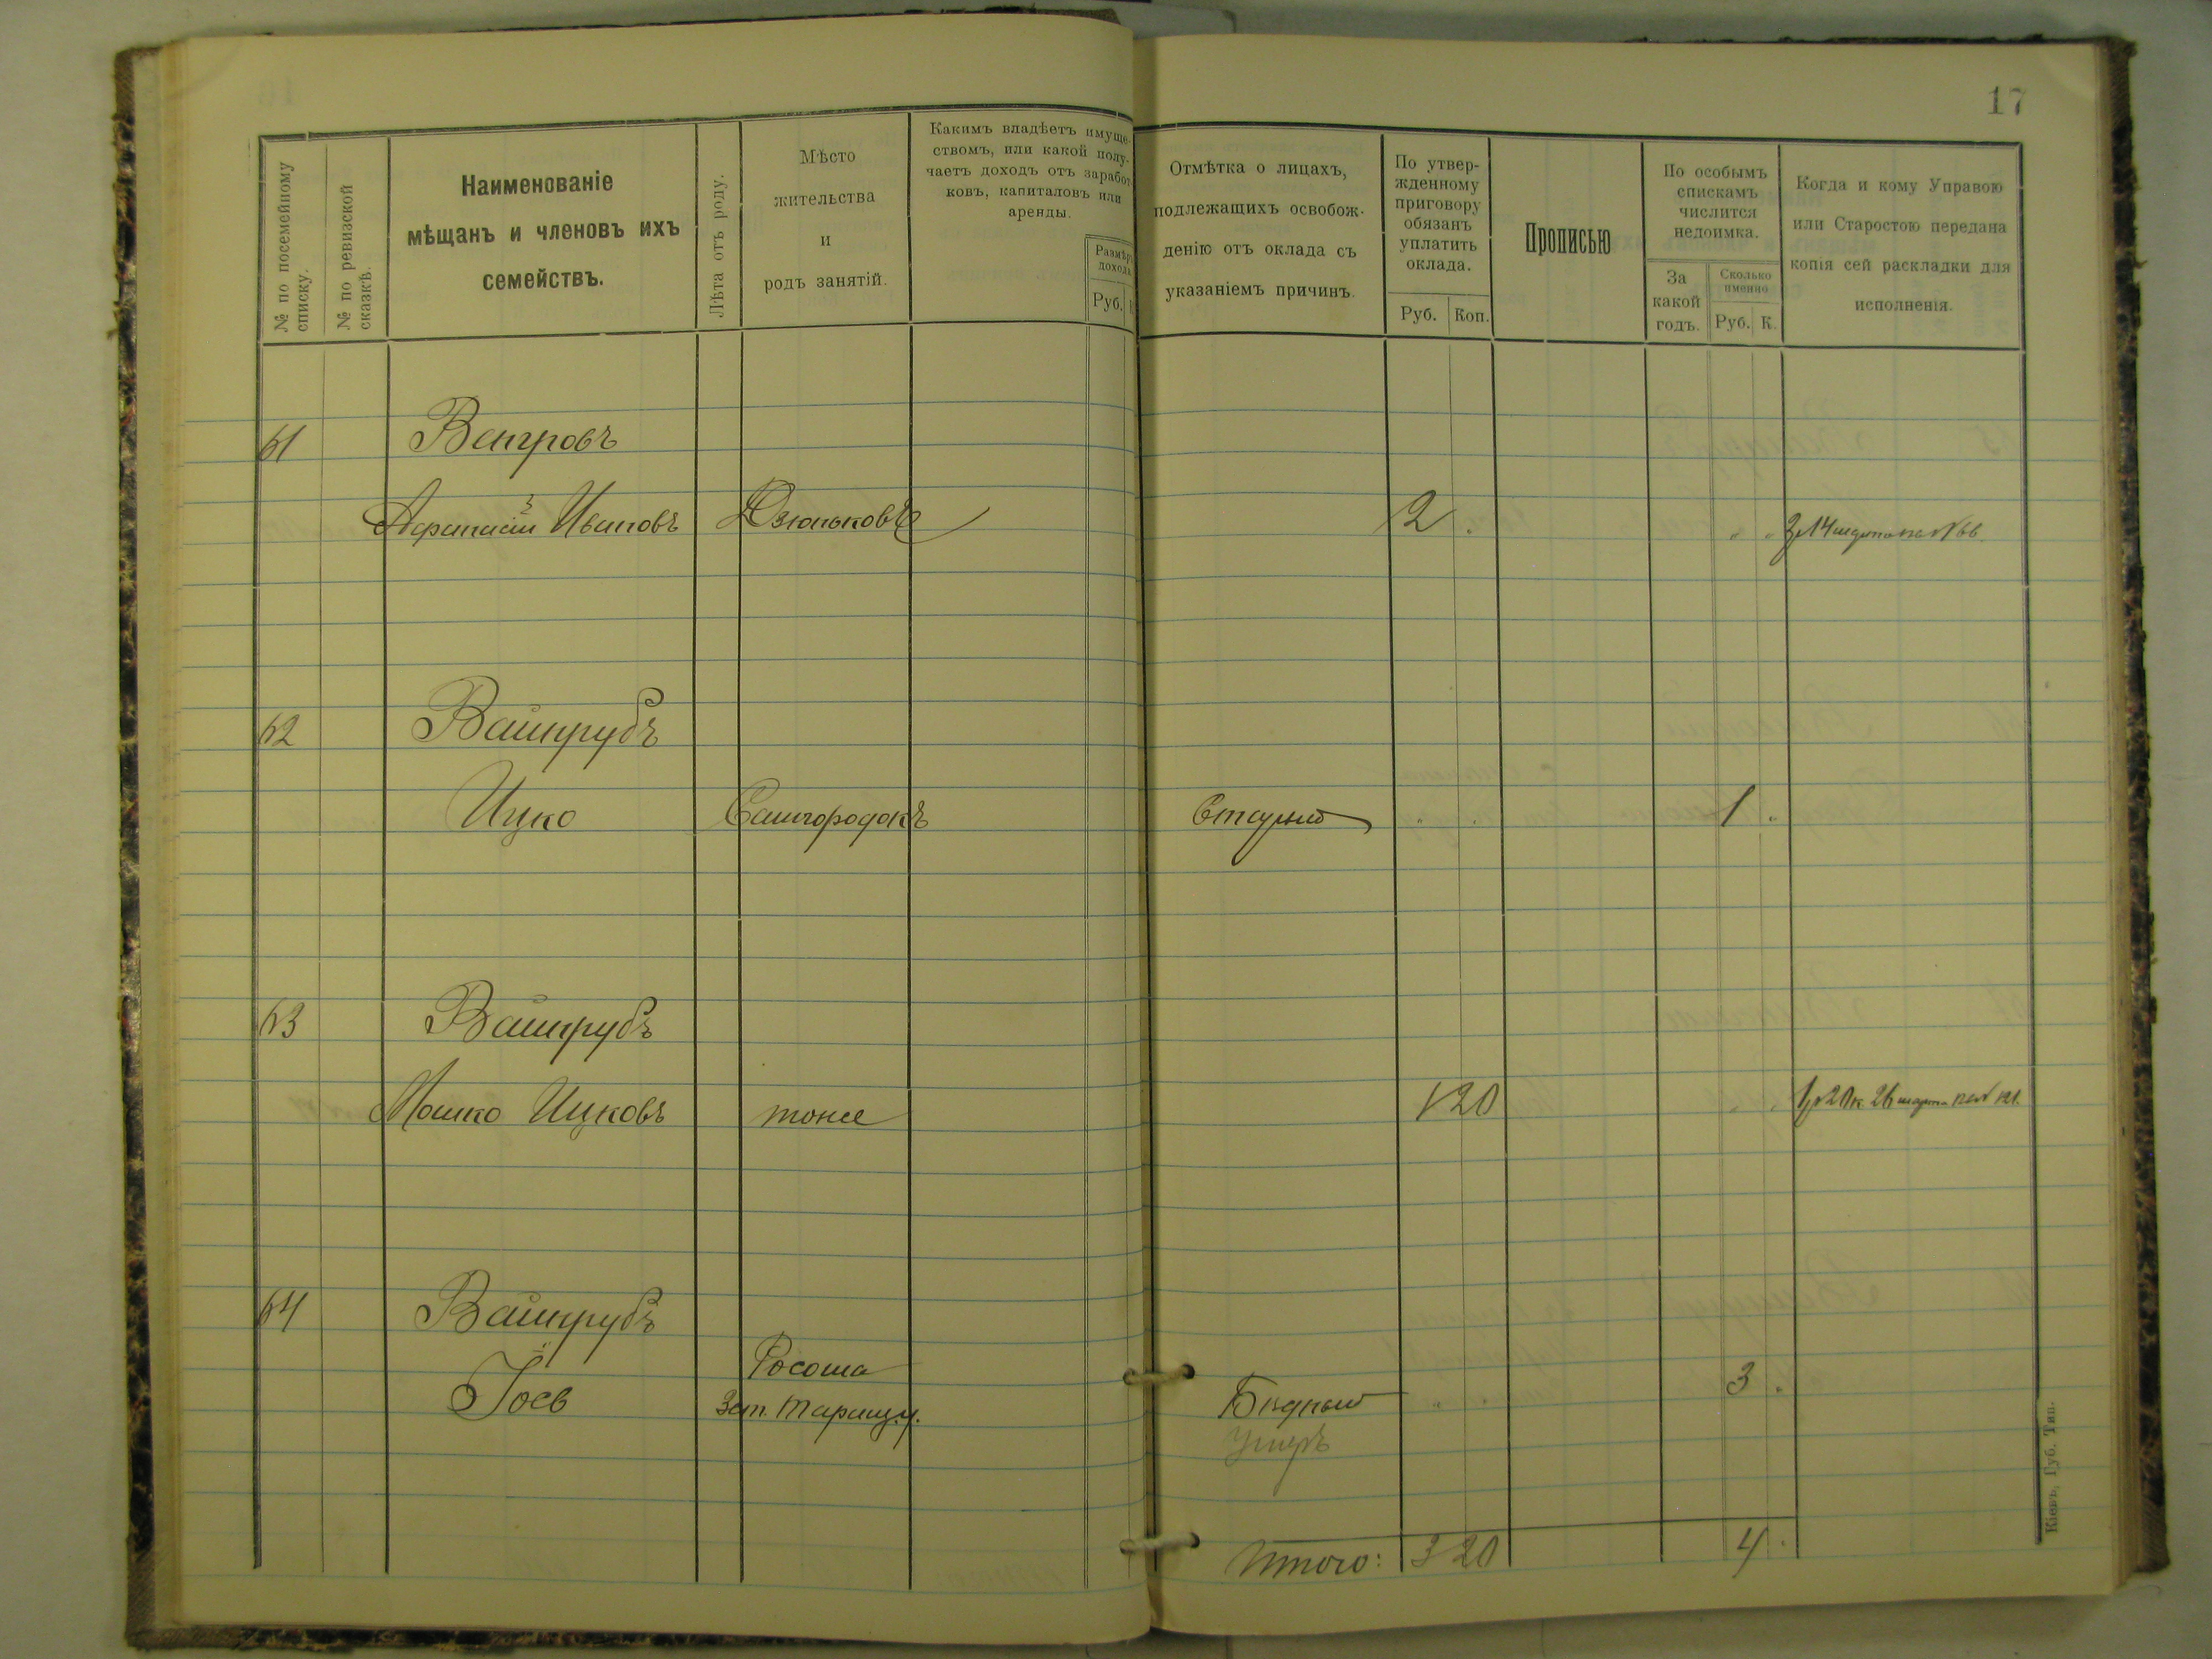 17
№ по посемейному
списку.
№ по ревизской
сказкѣ.
Наименованіе
мѣщанъ и членовъ ихъ
семействъ.
Лѣта отъ роду.
Мѣсто
жительства
и
родъ занятій.
Какимъ владѣетъ имуще-
ствомъ, или какой полу-
чаетъ доходъ отъ заработ-
ковъ, капиталовъ или
аренды.
Размѣръ
дохода
Руб.
Отмѣтка о лицахъ,
подлежащихъ освобож-
денію отъ оклада съ
указаніемъ причинъ.
По утвер-
жденному
приговору
обязанъ
уплатить
оклада.
Руб. Коп.
Прописью
По особымъ
спискамъ
числится
недоимка.
За
какой
годъ.
Сколько
именно
Руб. К.
Когда и кому Управою
или Старостою передана
копія сей раскладки для
исполненія.
61 Венгровъ
Афанасій Ивановъ Дзюньковъ 2 . " " 2р 14 марта по № 66.
62 Вайнрубъ
Ицко Самгородокъ Старый " . 1 "
63 Вайнрубъ
Мошко Ицковъ тоже 1 20 " " 1р 20 к. 26 марта по № 121.
64 Вайнрубъ
Іосъ Росоша Бѣдный " . 3 .
Зат. Таращ. у. умеръ
Итого: 3 20 4 .
Кіевъ, Губ. Тип.